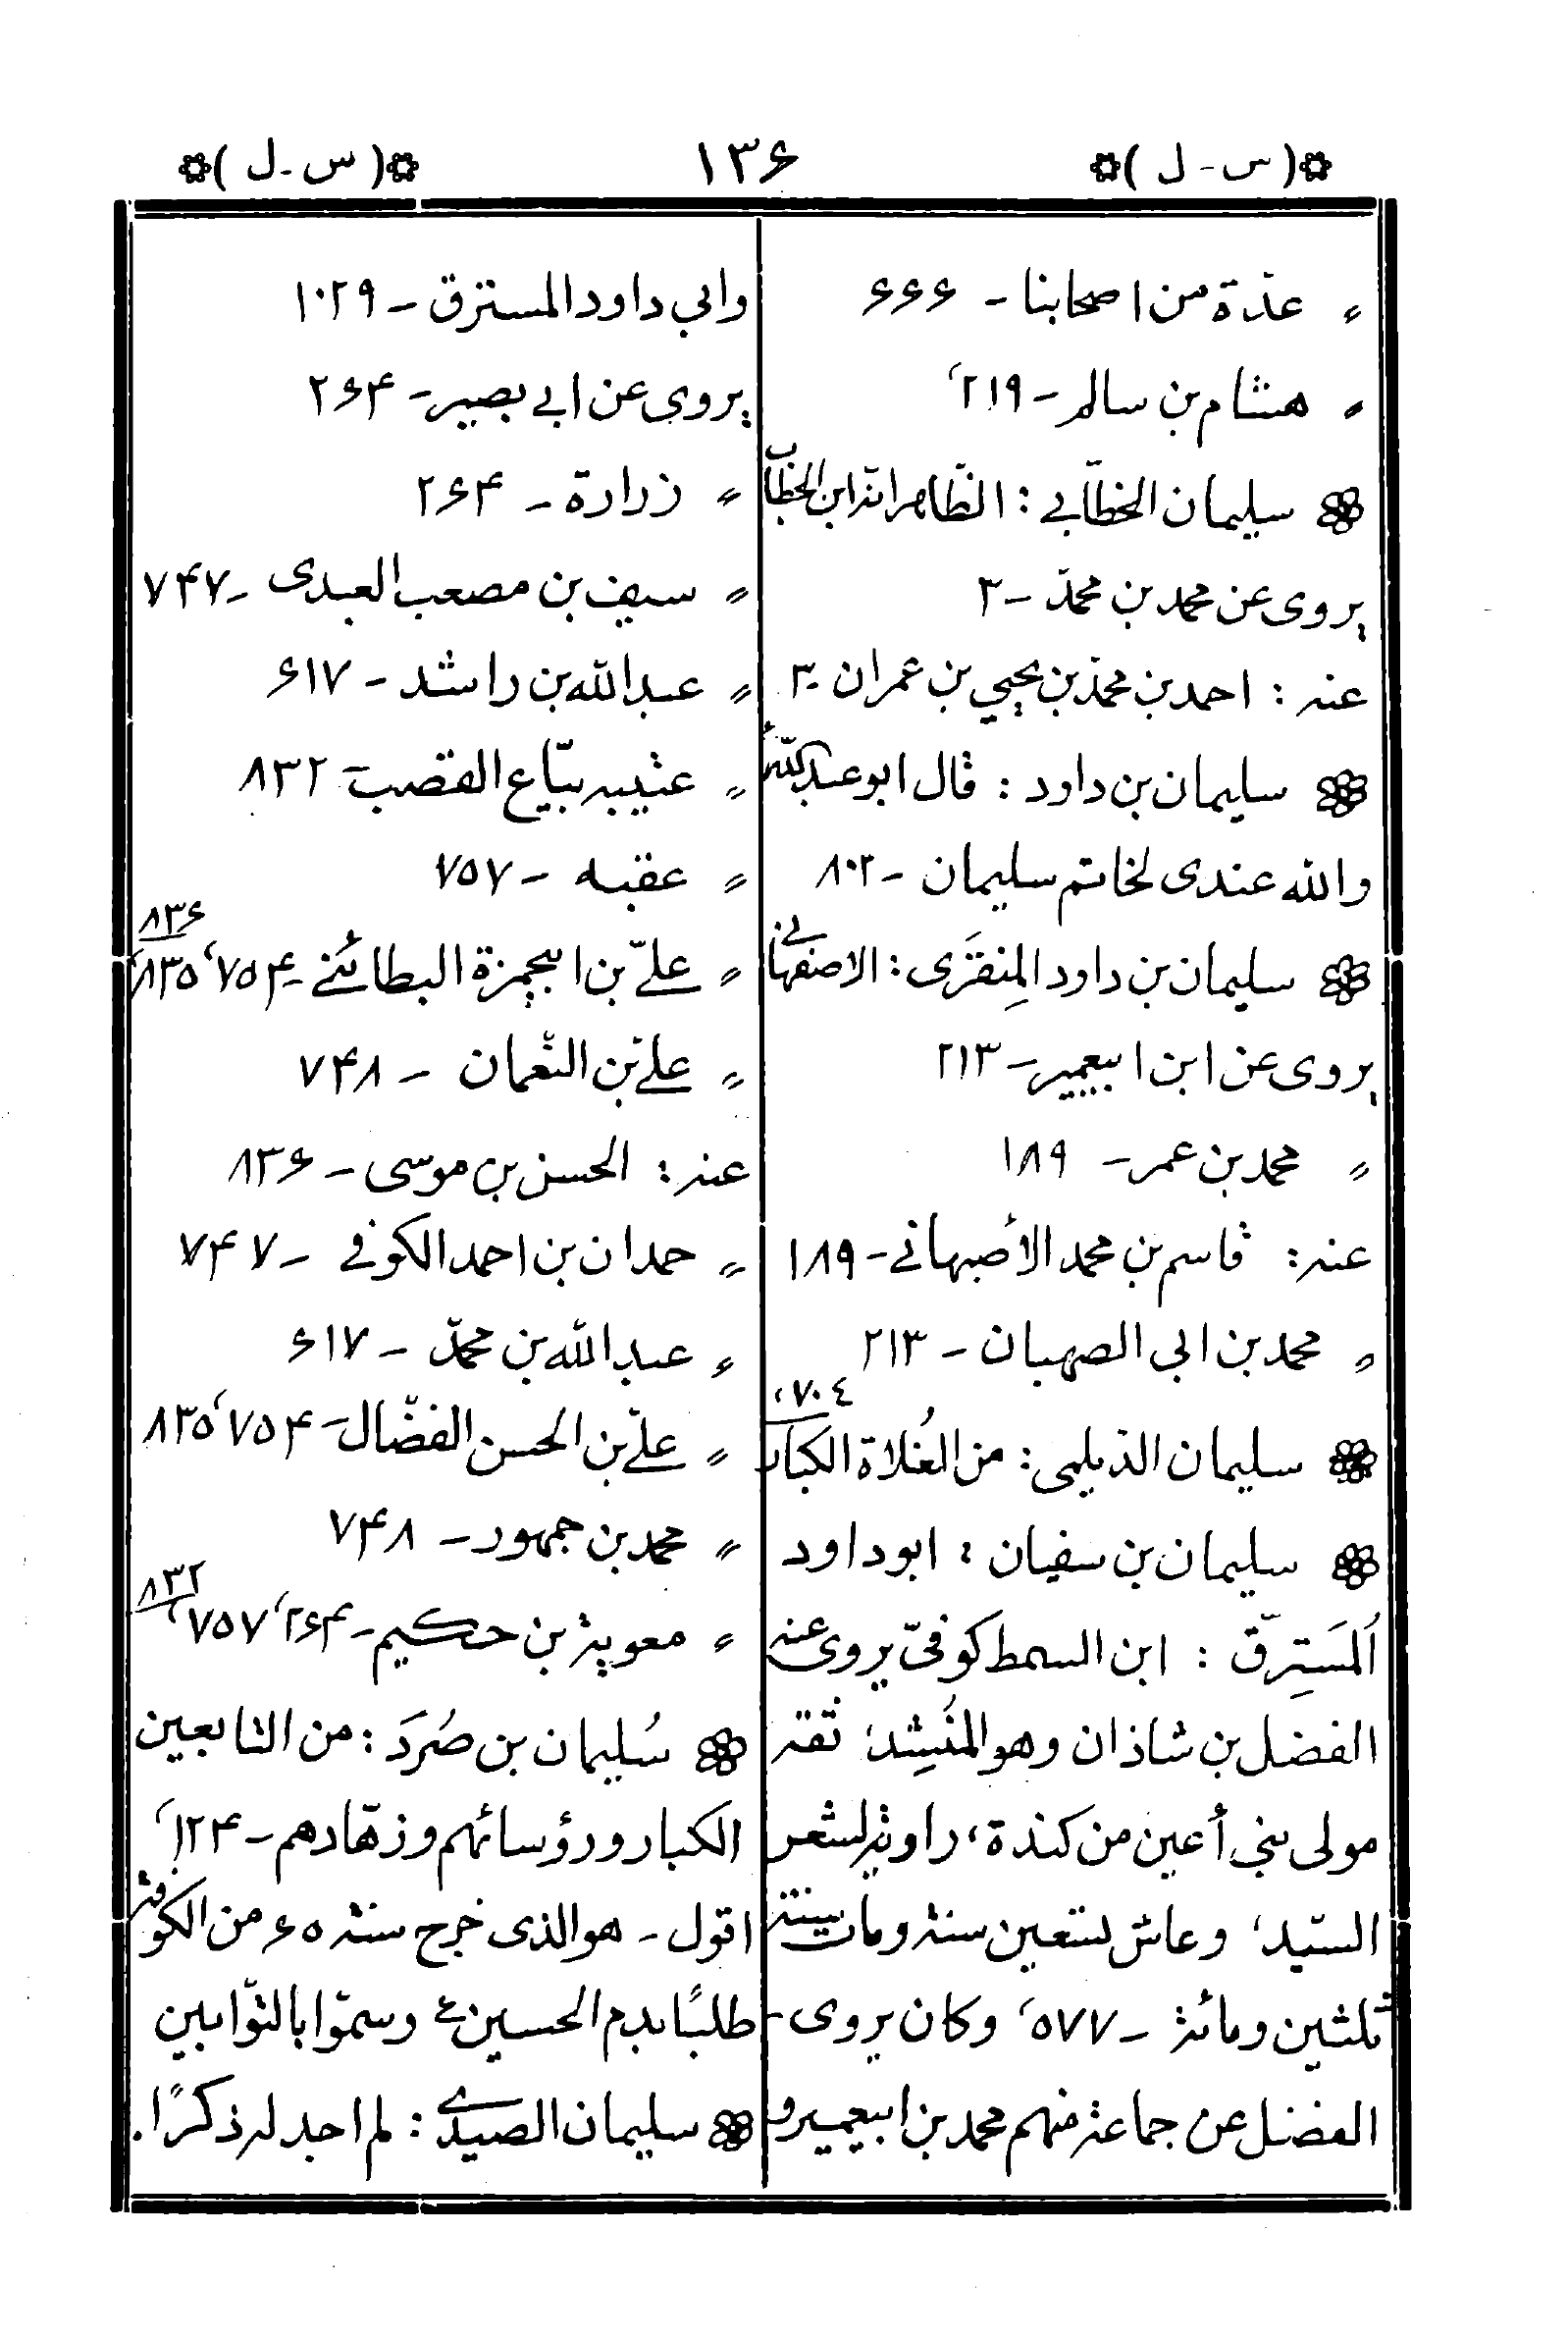 ❁(س-ل)❁
۱۳۶
❁(س-ل)❁
〃 عدّة من اصحابنا - ۶۶۶
〃 هشام بن سالم - ۲۱۹،
❁ سليمان الخطّابي : الظّاهر انّه ابن الخطّاب
يروى عن محمد بن محمّد - ۳
عنه : احمد بن محمّد بن يحيي بن عمران - ۳
❁ سليمان بن داود : قال ابو عبد الله
والله عندى لخاتم سليمان - ۸۰۲
❁ سليمان بن داود المِنقَرى : الاصفهاني
يروى عن ابن ابيعمير - ۲۱۳
〃 محمد بن عمر - ۱۸۹
عنه : قاسم بن محمد الأصبهاني - ۱۸۹
〃 محمد بن ابى الصهبان - ۲۱۳
❁ سليمان الديلمى : من الغُلاة الكبار ۷۰٤،
❁ سليمان بن سفيان : ابو داود
اَلمَسَترِقّ : ابن السمط كوفىّ يروى عنه
الفضل بن شاذان وهو المُنشِد، ثقة
مولى بني أعين من كندة، راوية لشعر
السّيد، وعاش تسعين سنة ومات سنة
ثلثين ومائة - ۵۷۷، وكان يروى -
الفضل عن جماعة منهم محمد بن ابيعمير و
وابى داود المسترق - ۱۰۲۹
يروى عن ابي بصير - ۲۶۴
〃 زرارة - ۲۶۴
〃 سيف بن مصعب العبدى - ۷۴۷
〃 عبد الله بن راشد - ۶۱۷
〃 عثيبه بيّاع القصب - ۸۳۲
〃 عقبه - ۷۵۷
〃 عليّ بن ابيحمزة البطائني - ۷۵۴، ۸۳۵، ۸۳۶
〃 عليّ بن النّعمان - ۷۴۸
عنه : الحسن بن موسى - ۸۳۶
〃 حمدان بن احمد الكوفي - ۷۴۷
〃 عبد الله بن محمّد - ۶۱۷
〃 عليّ بن الحسن الفضّال - ۷۵۴، ۸۳۵
〃 محمد بن جمهور - ۷۴۸
〃 معوية بن حكيم - ۲۶۴، ۷۵۷، ۸۳۲
❁ سُليمان بن صُرَد : من التابعين
الكبار ورؤسائهم وزهّادهم - ۱۲۴،
اقول - هو الذى خرج سنة ۶۵ من الكوفة
طلبًا بدم الحسين ع وسمّوا بالتّوابين
❁ سليمان الصيدي : لم اجد له ذكرًا.